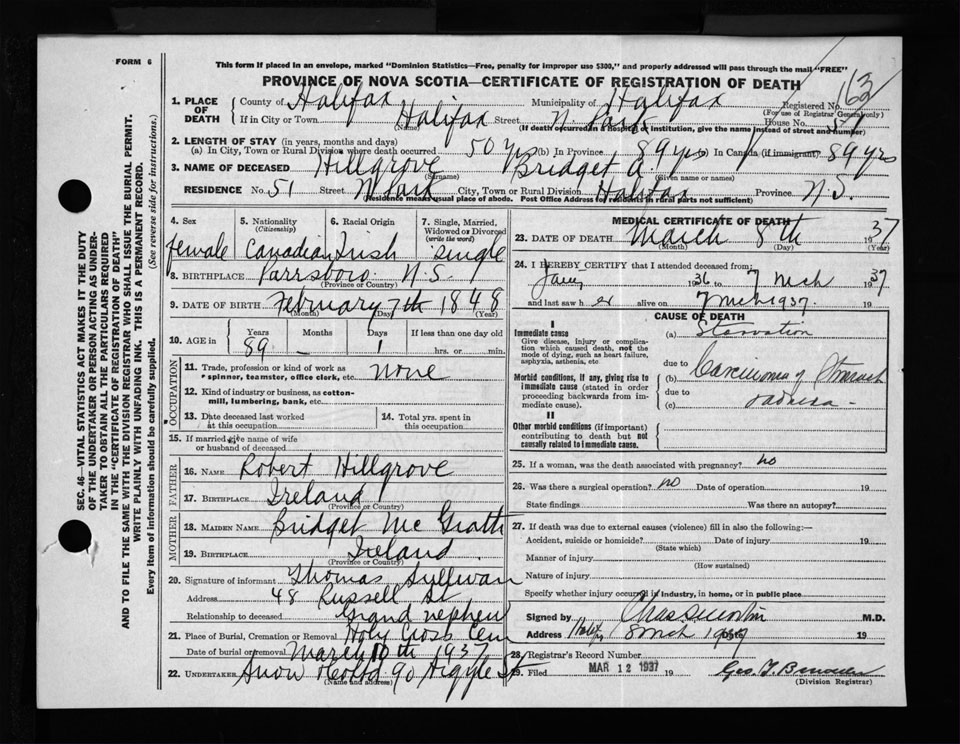 FORM 6
This form if placed in an envelope, marked "Dominion Statistics—Free, penalty for improper use $300," and properly addressed will pass through the mail "FREE"
PROVINCE OF NOVA SCOTIA—CERTIFICATE OF REGISTRATION OF DEATH
163
1. PLACE OF DEATH
County of Halifax Municipality of Halifax Registered No.
(For use of Registrar General only)
If in City or Town Halifax Street N. Park House No. 51
(Name) (If death occurred in a Hospital or Institution, give the name instead of street and number)
2. LENGTH OF STAY (in years, months and days)
(a) In City, Town or Rural Division where death occurred 50 yrs (b) In Province 89 yrs (c) In Canada (if immigrant) 89 yrs
3. NAME OF DECEASED Hillgrove Bridget A.
(Surname) (Given name or names)
RESIDENCE No. 51 Street N Park City, Town or Rural Division Halifax Province N.S.
(Residence means usual place of abode. Post Office Address for residents in rural parts not sufficient)
SEC. 46—VITAL STATISTICS ACT MAKES IT THE DUTY
OF THE UNDERTAKER OR PERSON ACTING AS UNDER-
TAKER TO OBTAIN ALL THE PARTICULARS REQUIRED
IN THE "CERTIFICATE OF REGISTRATION OF DEATH"
AND TO FILE THE SAME WITH THE DIVISION REGISTRAR WHO SHALL ISSUE THE BURIAL PERMIT.
WRITE PLAINLY WITH UNFADING INK. THIS IS A PERMANENT RECORD.
Every item of information should be carefully supplied. (See reverse side for instructions.)
4. Sex 5. Nationality (Citizenship) 6. Racial Origin 7. Single, Married, Widowed or Divorced (write the word)
female Canadian Irish Single
8. BIRTHPLACE Parrsboro N.S.
(Province or Country)
9. DATE OF BIRTH February 7th 1848
(Month) (Day) (Year)
10. AGE in Years Months Days If less than one day old
89 – 1 hrs. or min.
OCCUPATION
11. Trade, profession or kind of work as spinner, teamster, office clerk, etc. none
12. Kind of industry or business, as cotton-mill, lumbering, bank, etc.
13. Date deceased last worked at this occupation
14. Total yrs. spent in this occupation
15. If married give name of wife or husband of deceased
FATHER
16. NAME Robert Hillgrove
17. BIRTHPLACE Ireland
(Province or Country)
MOTHER
18. MAIDEN NAME Bridget Mc Grath
19. BIRTHPLACE Ireland
(Province or Country)
20. Signature of informant Thomas Sullivan
Address 48 Russell St
Relationship to deceased Grand nephew
21. Place of Burial, Cremation or Removal Holy Cross Cem
Date of burial or removal March 10th 1937
22. UNDERTAKER Snow 90 Argyle St
(Name and address)
MEDICAL CERTIFICATE OF DEATH
23. DATE OF DEATH March 8th 1937
(Month) (Day) (Year)
24. I HEREBY CERTIFY that I attended deceased from:
Jany 1936 to 7 Mch 1937
and last saw h er alive on 7 Mch 1937.
CAUSE OF DEATH
I
Immediate cause
Give disease, injury or complication which caused death, not the mode of dying, such as heart failure, asphyxia, asthenia, etc.
(a) Starvation
due to
Morbid conditions, if any, giving rise to immediate cause (stated in order proceeding backwards from immediate cause).
(b) Carcinoma of Stomach
due to
(c)
II
Other morbid conditions (if important) contributing to death but not causally related to immediate cause.
25. If a woman, was the death associated with pregnancy? no
26. Was there a surgical operation? no Date of operation 19
State findings Was there an autopsy?
27. If death was due to external causes (violence) fill in also the following:—
Accident, suicide or homicide? Date of injury 19
(State which)
Manner of injury
(How sustained)
Nature of injury
Specify whether injury occurred in industry, in home, or in public place
Signed by M.D.
Address Halifax 8 Mch 1937 19
28. Registrar's Record Number
29. Filed MAR 12 1937 19
(Division Registrar)